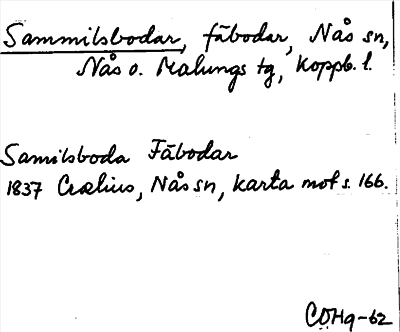 Sammilsbodar, fäbodar, Nås sn,
Nås o. Malungs tg, Koppb. l.
Samilsboda Fäbodar
1837 Crælius, Nås sn, karta mot s. 166.
CDHq-62